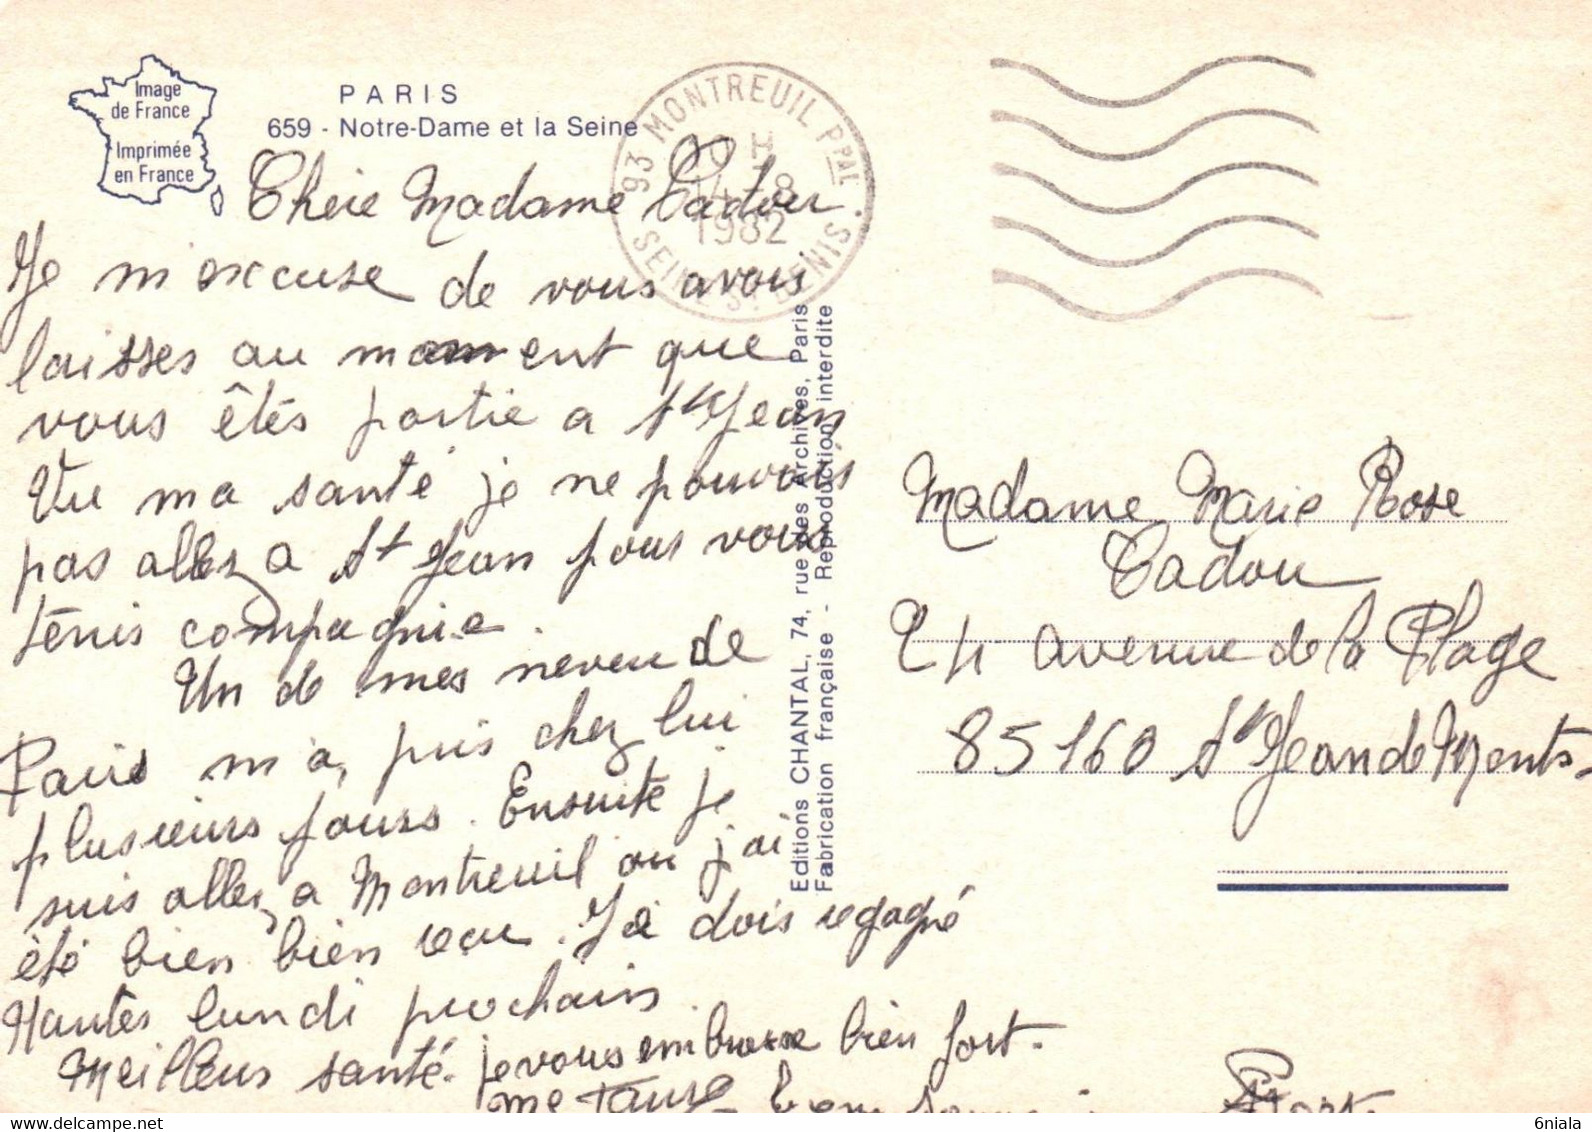 Image
de France
Imprimée
en France
PARIS
659 - Notre-Dame et la Seine
93 MONTREUIL PPAL
SEINE ST DENIS
H
14-8
1982
Chère Madame Cadou
Je m'excuse de vous avois
laisses au moment que
vous êtés partie a St Jean
Vu ma santé je ne pouvais
pas allez a St Jean pour vous
ténis compagnie.
Un de mes neveu de
Paris m'a, pris chez lui
plusieurs jours. Ensuite je
suis allez a Montreuil ou j'ai
été bien bien reçu. Je dois regagné
Nantes lundi prochain
Meilleur santé. je vous embrasse bien fort.
Me
Editions CHANTAL, 74, rue des Archives, Paris
Fabrication française - Reproduction interdite
Madame Marie Rose
Cadou
24 avenue de la Plage
85160 St Jean de Monts
delcampe.net
6niala